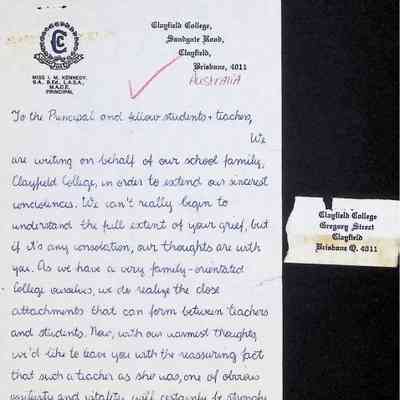 Clayfield College,
Sandgate Road,
Clayfield,
Brisbane, 4011
AUSTRALIA
CC
MISS I. M. KENNEDY,
B.A., B.Ed., L.A.S.A.,
M.A.C.E.
PRINCIPAL
To the Principal and fellow students + teachers,
We
are writing on behalf of our school family,
Clayfield College, in order to extend our sincerest
condolences. We can't really begin to
understand the full extent of your grief, but
if it's any consolation, our thoughts are with
you. As we have a very family-orientated
College ourselves, we do realize the close
attachments that can form between teachers
and students. Now, with our warmest thoughts,
we'd like to leave you with the reassuring fact
that such a teacher as she was, one of obvious
and vitality, will certainly be strongly
Clayfield College
Gregory Street
Clayfield
Brisbane Q. 4011